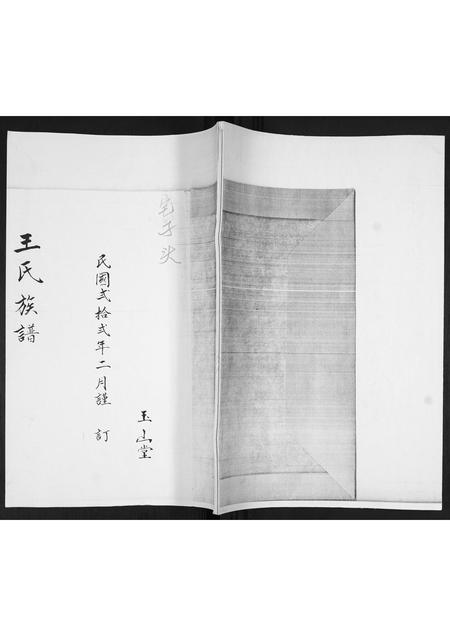 宅子头
玉山堂
民國弍拾弍年二月謹訂
王氏族譜